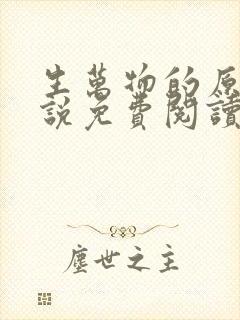 生萬物的原
說免費閱讀
塵世之主